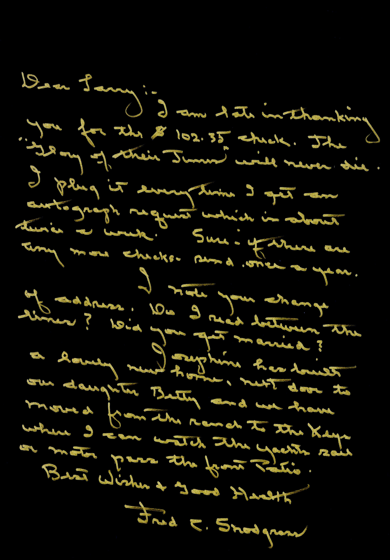 Dear Larry:-
I am late in thanking
you for the $ 102.35 check. The
"Glory of their Times" will never die.
I plug it every time I get an
autograph request which is about
twice a week. Sure - if there are
any more checks - send once a year.
I note your change
of address. Do I read between the
lines? Did you get married?
Josephine has built
a lovely new home, next door to
our daughter Betty and we have
moved from the ranch to the Keys
where I can watch the yachts sail
or motor pass the front Patio.
Best Wishes & Good Health
Fred C. Snodgrass